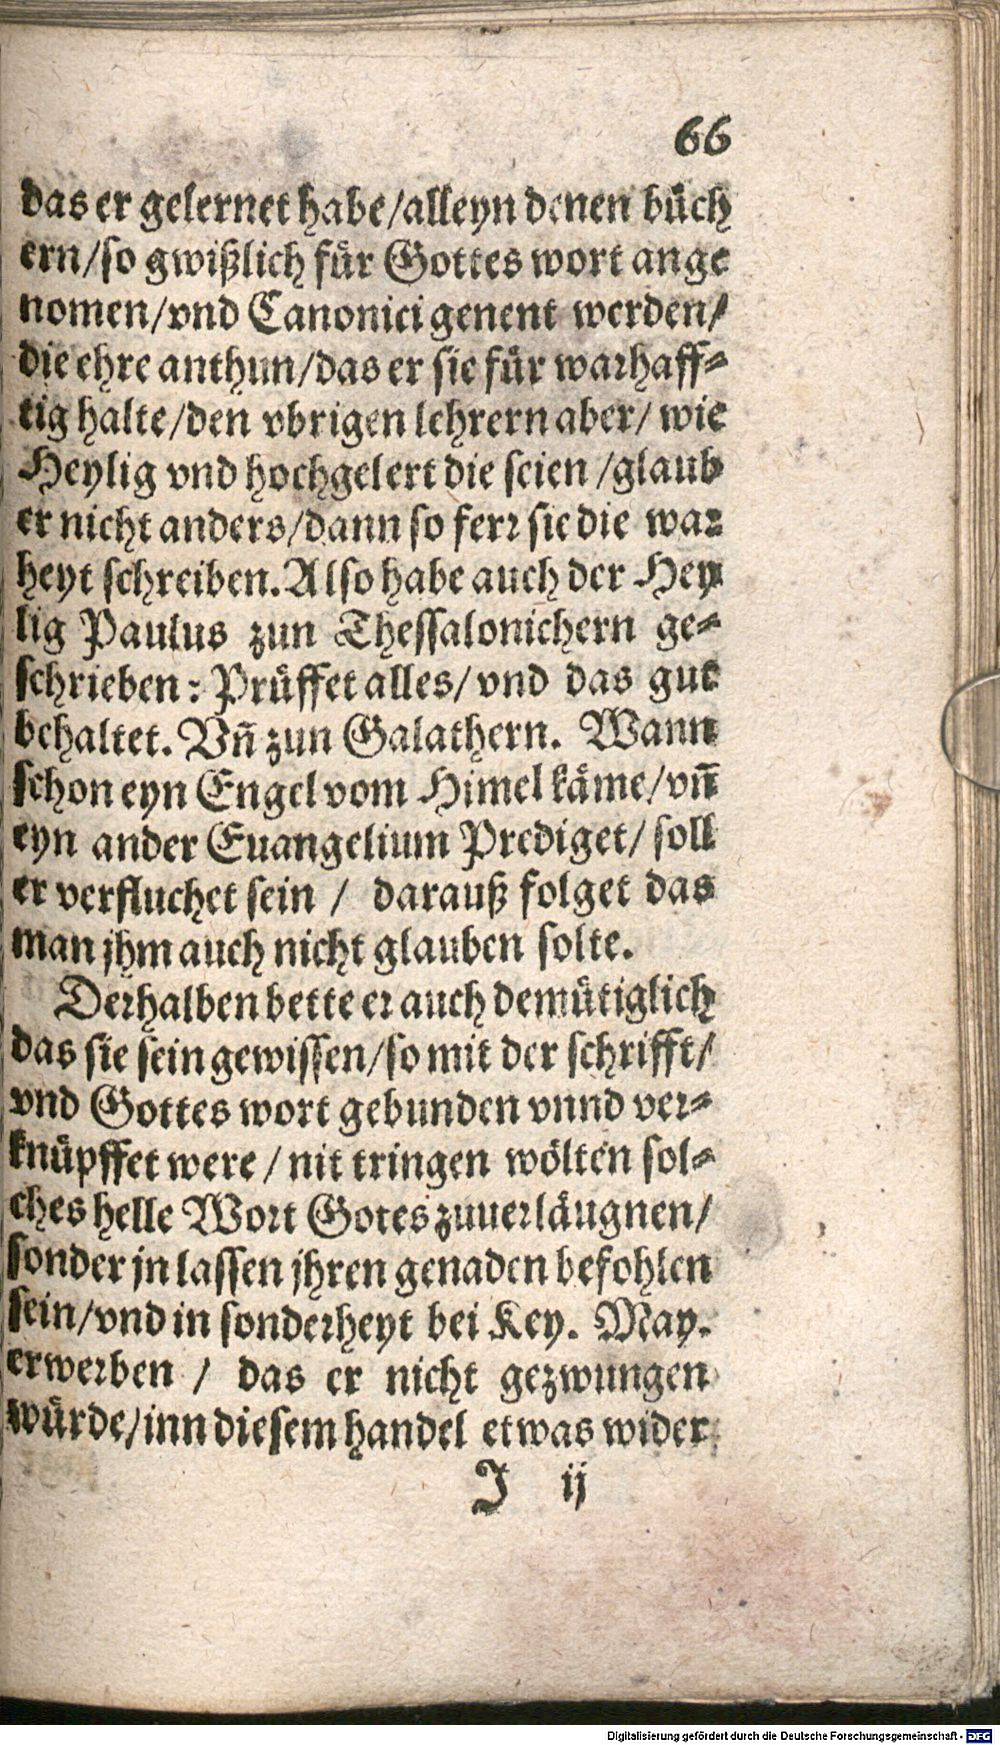 66
das er gelernet habe/alleyn denen büch
ern/so gwißlich für Gottes wort ange
nomen/vnd Canonici genent werden/
die ehre anthun/das er sie für warhaff⸗
tig halte/den vbrigen lehrern aber/ wie
Heylig vnd hochgelert die seien /glaub
er nicht anders/dann so ferr sie die war
heyt schreiben. Also habe auch der Hey
lig Paulus zun Thessalonichern ge⸗
schrieben: Prüffet alles/ vnd das gut
behaltet. Vñ zun Galathern. Wann
schon eyn Engel vom Himel käme/vñ
eyn ander Euangelium Prediget/ soll
er verfluchet sein / darauß folget das
man jhm auch nicht glauben solte.
Derhalben bette er auch demütiglich
das sie sein gewissen/so mit der schrifft/
vnd Gottes wort gebunden vnnd ver⸗
knüpffet were / nit tringen wölten sol⸗
ches helle Wort Gotes zuuerläugnen/
sonder jn lassen jhren genaden befohlen
sein/vnd in sonderheyt bei Key. May.
erwerben / das er nicht gezwungen
würde/inn diesem handel etwas wider
J ij
Digitalisierung gefördert durch die Deutsche Forschungsgemeinschaft - DFG